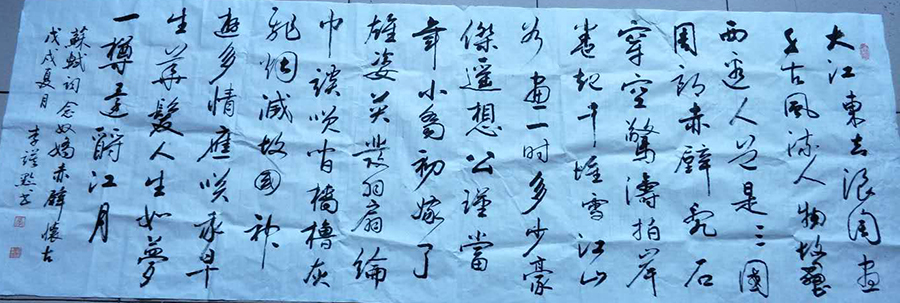 大江東去浪淘盡
千古風流人物故壘
西邊人道是三國
周郎赤壁亂石
穿空驚濤拍岸
卷起千堆雪江山
如畫一时多少豪
傑遥想公瑾當
年小喬初嫁了
雄姿英發羽扇綸
巾談笑间檣櫓灰
飛烟滅故國神
遊多情應笑我早
生華髮人生如夢
一樽還酹江月
蘇軾詞念奴嬌赤壁懷古
戊戌夏月 李 书